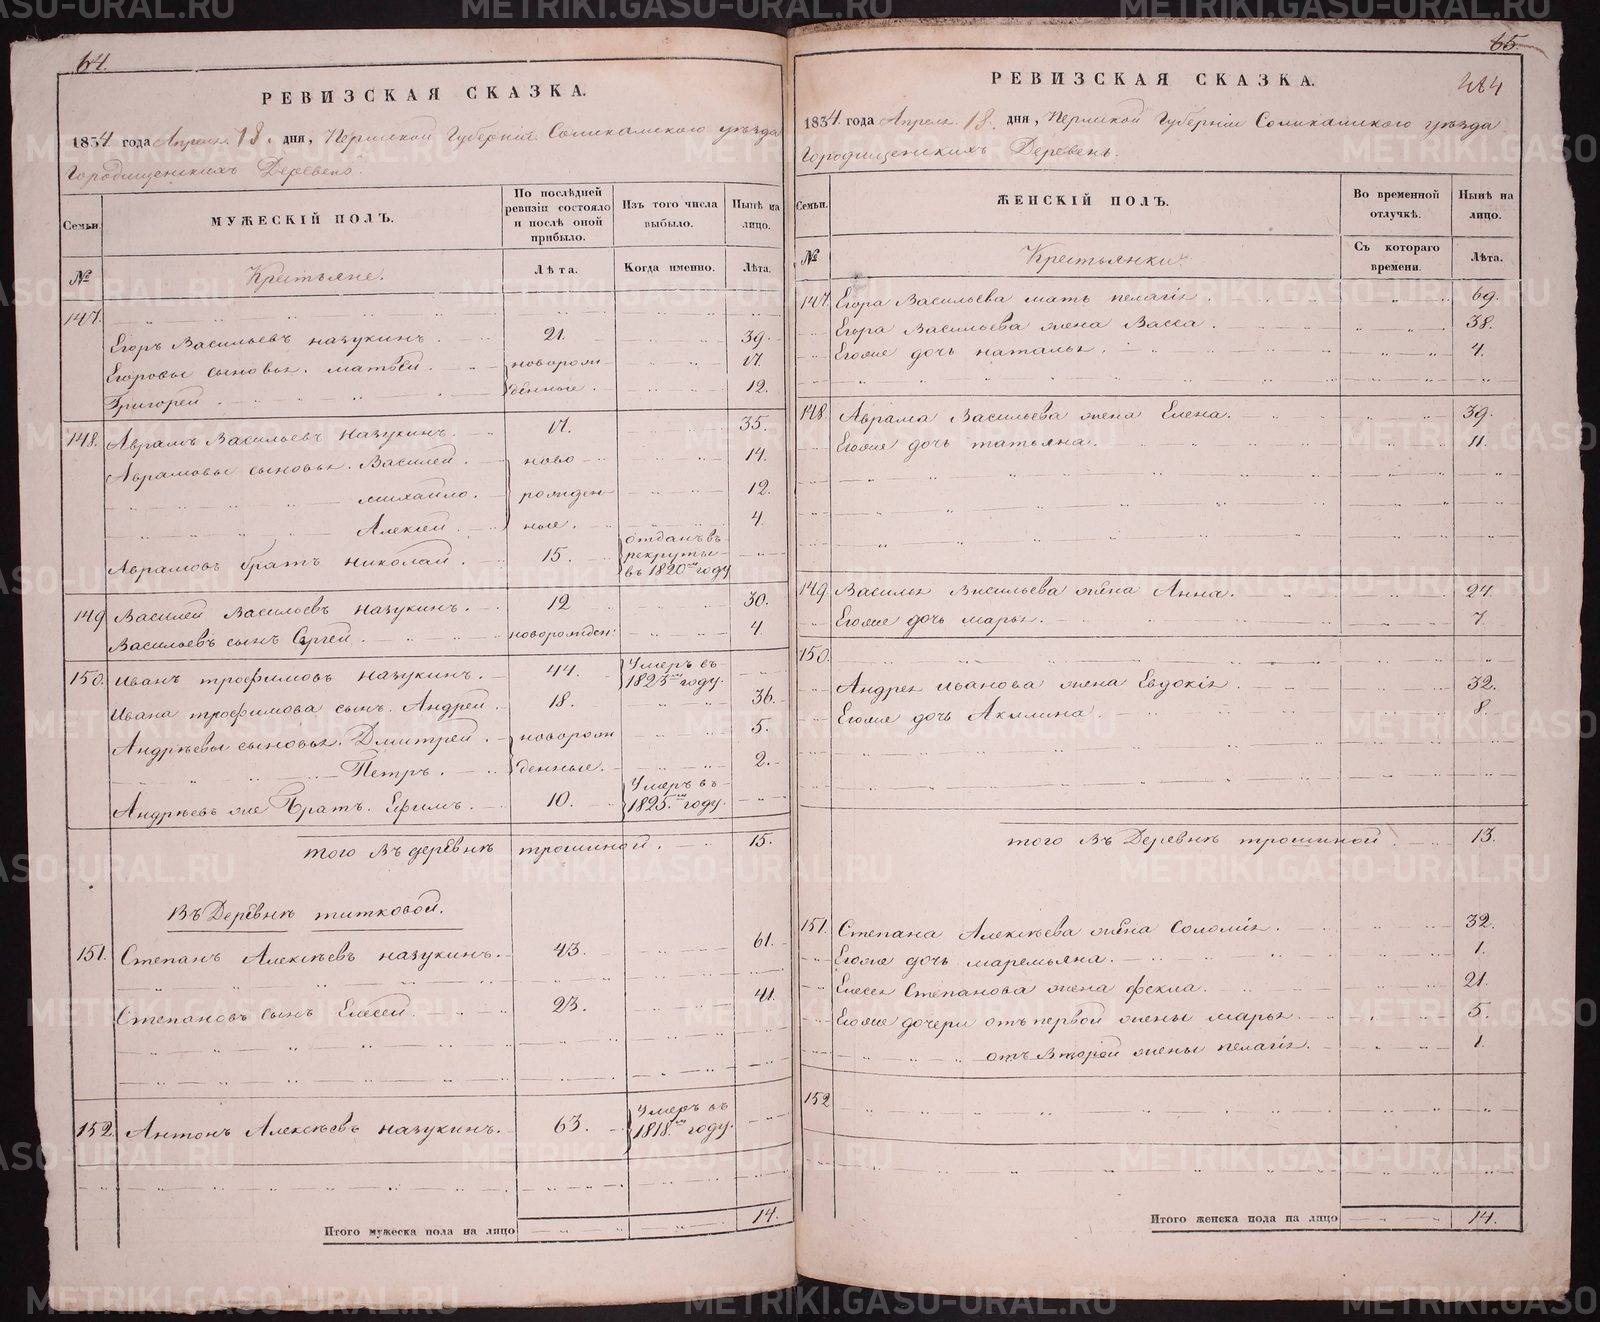 64.
РЕВИЗСКАЯ СКАЗКА.
1834 года Апреля 18. дня, Пермской Губернiи Соликамскаго уѣзда
Городищенскихъ Деревень.
Семьи.
МУЖЕСКIЙ ПОЛЪ.
По послѣдней ревизiи состояло и послѣ оной прибыло.
Изъ того числа выбыло.
Нынѣ на лицо.
№
Крестьяне.
Лѣта.
Когда именно.
Лѣта.
147.
Егоръ Васильевъ назукинъ. 21. 39.
Егоровы сыновья. матвей. новорож 17.
Григорей денные. 12.
148. Аврамъ Васильевъ Назукинъ. 17. 35.
Аврамовы сыновья. Василей. ново 14.
михайло. рожден 12.
Алексей. ные. 4.
Аврамовъ братъ николай. 15. отданъ въ рекруты въ 1820м году
149 Василей Васильевъ назукинъ. 12 30.
Васильевъ сынъ Сергей. новорожден: 4.
150. Иванъ трофимовъ назукинъ. 44. Умеръ въ 1823м году.
Ивана трофимова сынъ. Андрей. 18. 36.
Андрѣевы сыновья. Дмитрей. новорож 5.
Петръ. денные. 2.
Андрѣевъ же Братъ. Ефимъ. 10. Умеръ въ 1825м году.
того Въ деревнѣ трошиной. 15.
Въ Деревнѣ титковой.
151. Степанъ Алексѣевъ назукинъ. 43. 61.
Степановъ сынъ Елесей. 23. 41.
152. Антонъ Алексѣевъ назукинъ. 63. Умеръ въ 1818м году.
Итого мужеска пола на лицо 14.
65.
484
РЕВИЗСКАЯ СКАЗКА.
1834 года Апреля 18. дня, Пермской Губернiи Соликамскаго уѣзда
Городищенскихъ Деревень.
Семьи.
ЖЕНСКIЙ ПОЛЪ.
Во временной отлучкѣ.
Нынѣ на лицо.
№
Крестьянки.
Съ котораго времени.
Лѣта.
147. Егора Васильева мать пелагiя. 69.
Егора Васильева жена Васса. 38.
Егоже дочь наталья. 4.
148. Аврама Васильева жена Елена. 39.
Егоже дочь татьяна. 11.
149. Василья Васильева жена Анна. 24.
Егоже дочь марья. 7.
150.
Андрея иванова жена Евдокiя. 32.
Егоже дочь Акилина. 8.
того Въ Деревнѣ трошиной 13.
151. Степана Алексѣева жена Соломiя. 32.
Егоже дочь маремьяна. 1.
Елесея Степанова жена фекла. 21.
Егоже дочери отъ первой жены марья. 5.
отъ второй жены пелагiя. 1.
152
Итого женска пола на лицо 14.